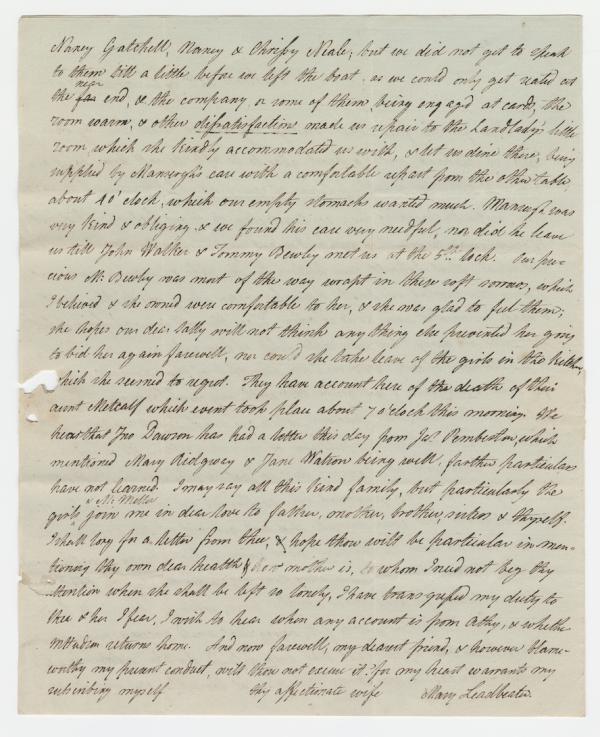 Nancy Gatchell, Nancy & Chrissy Neale; but we did not get to speak
to them till a little before we left the boat. as we could only get seated at
the far near end, & the company, or some of them being engaged at cards, the
room warm, & other dissatisfaction made us repair to the Landlady's little
room which she kindly accommodated us with, & let us dine there, being
supplied by Manserghs care with a comfortable repast from the other table
about 4 o'clock, which our empty stomachs wanted much. Mansergh was
very kind & obliging, & we found his care very needful, nor did he leave
us till John Walker & Tommy Bewley met us at the 5th lock. Our pre-
cious M: Bewley was most of the way wrapt in these soft sorrows, which
I believed & she owned were comfortable to her, & she was glad to feel them;
she hopes our dear Sally will not think any thing else prevented her going
to bid her again farewell, nor could she take leave of the girls in the kitchen,
which she seemed to regret. They have account here of the death of their
aunt Metcalf which event took place about 7 o'clock this morning. We
hear that Jno Dawson has had a letter this day from Jas Pemberton, which
mentioned Mary Ridgway & Jane Watson being well, farther particulars
have not learned. I may say all this kind family, but particularly the
girls & N: Mellor join me in dear love to father, mother, brother, sisters & thyself.
I shall long for a letter from thee, & hope thou wilt be particular in men-
tioning thy own dear health & how mother is, to whom I need not beg thy
attention when she shall be left so lonely, I have transgressed my duty to
thee & her I fear, I wish to hear when any account is from Athy, & whether
returns home. And now farewell, my dearest friend, & however blame-
worthy my present conduct, wilt thou not excuse it? for my heart warrants my
subscribing myself thy affectionate wife Mary Leadbeater